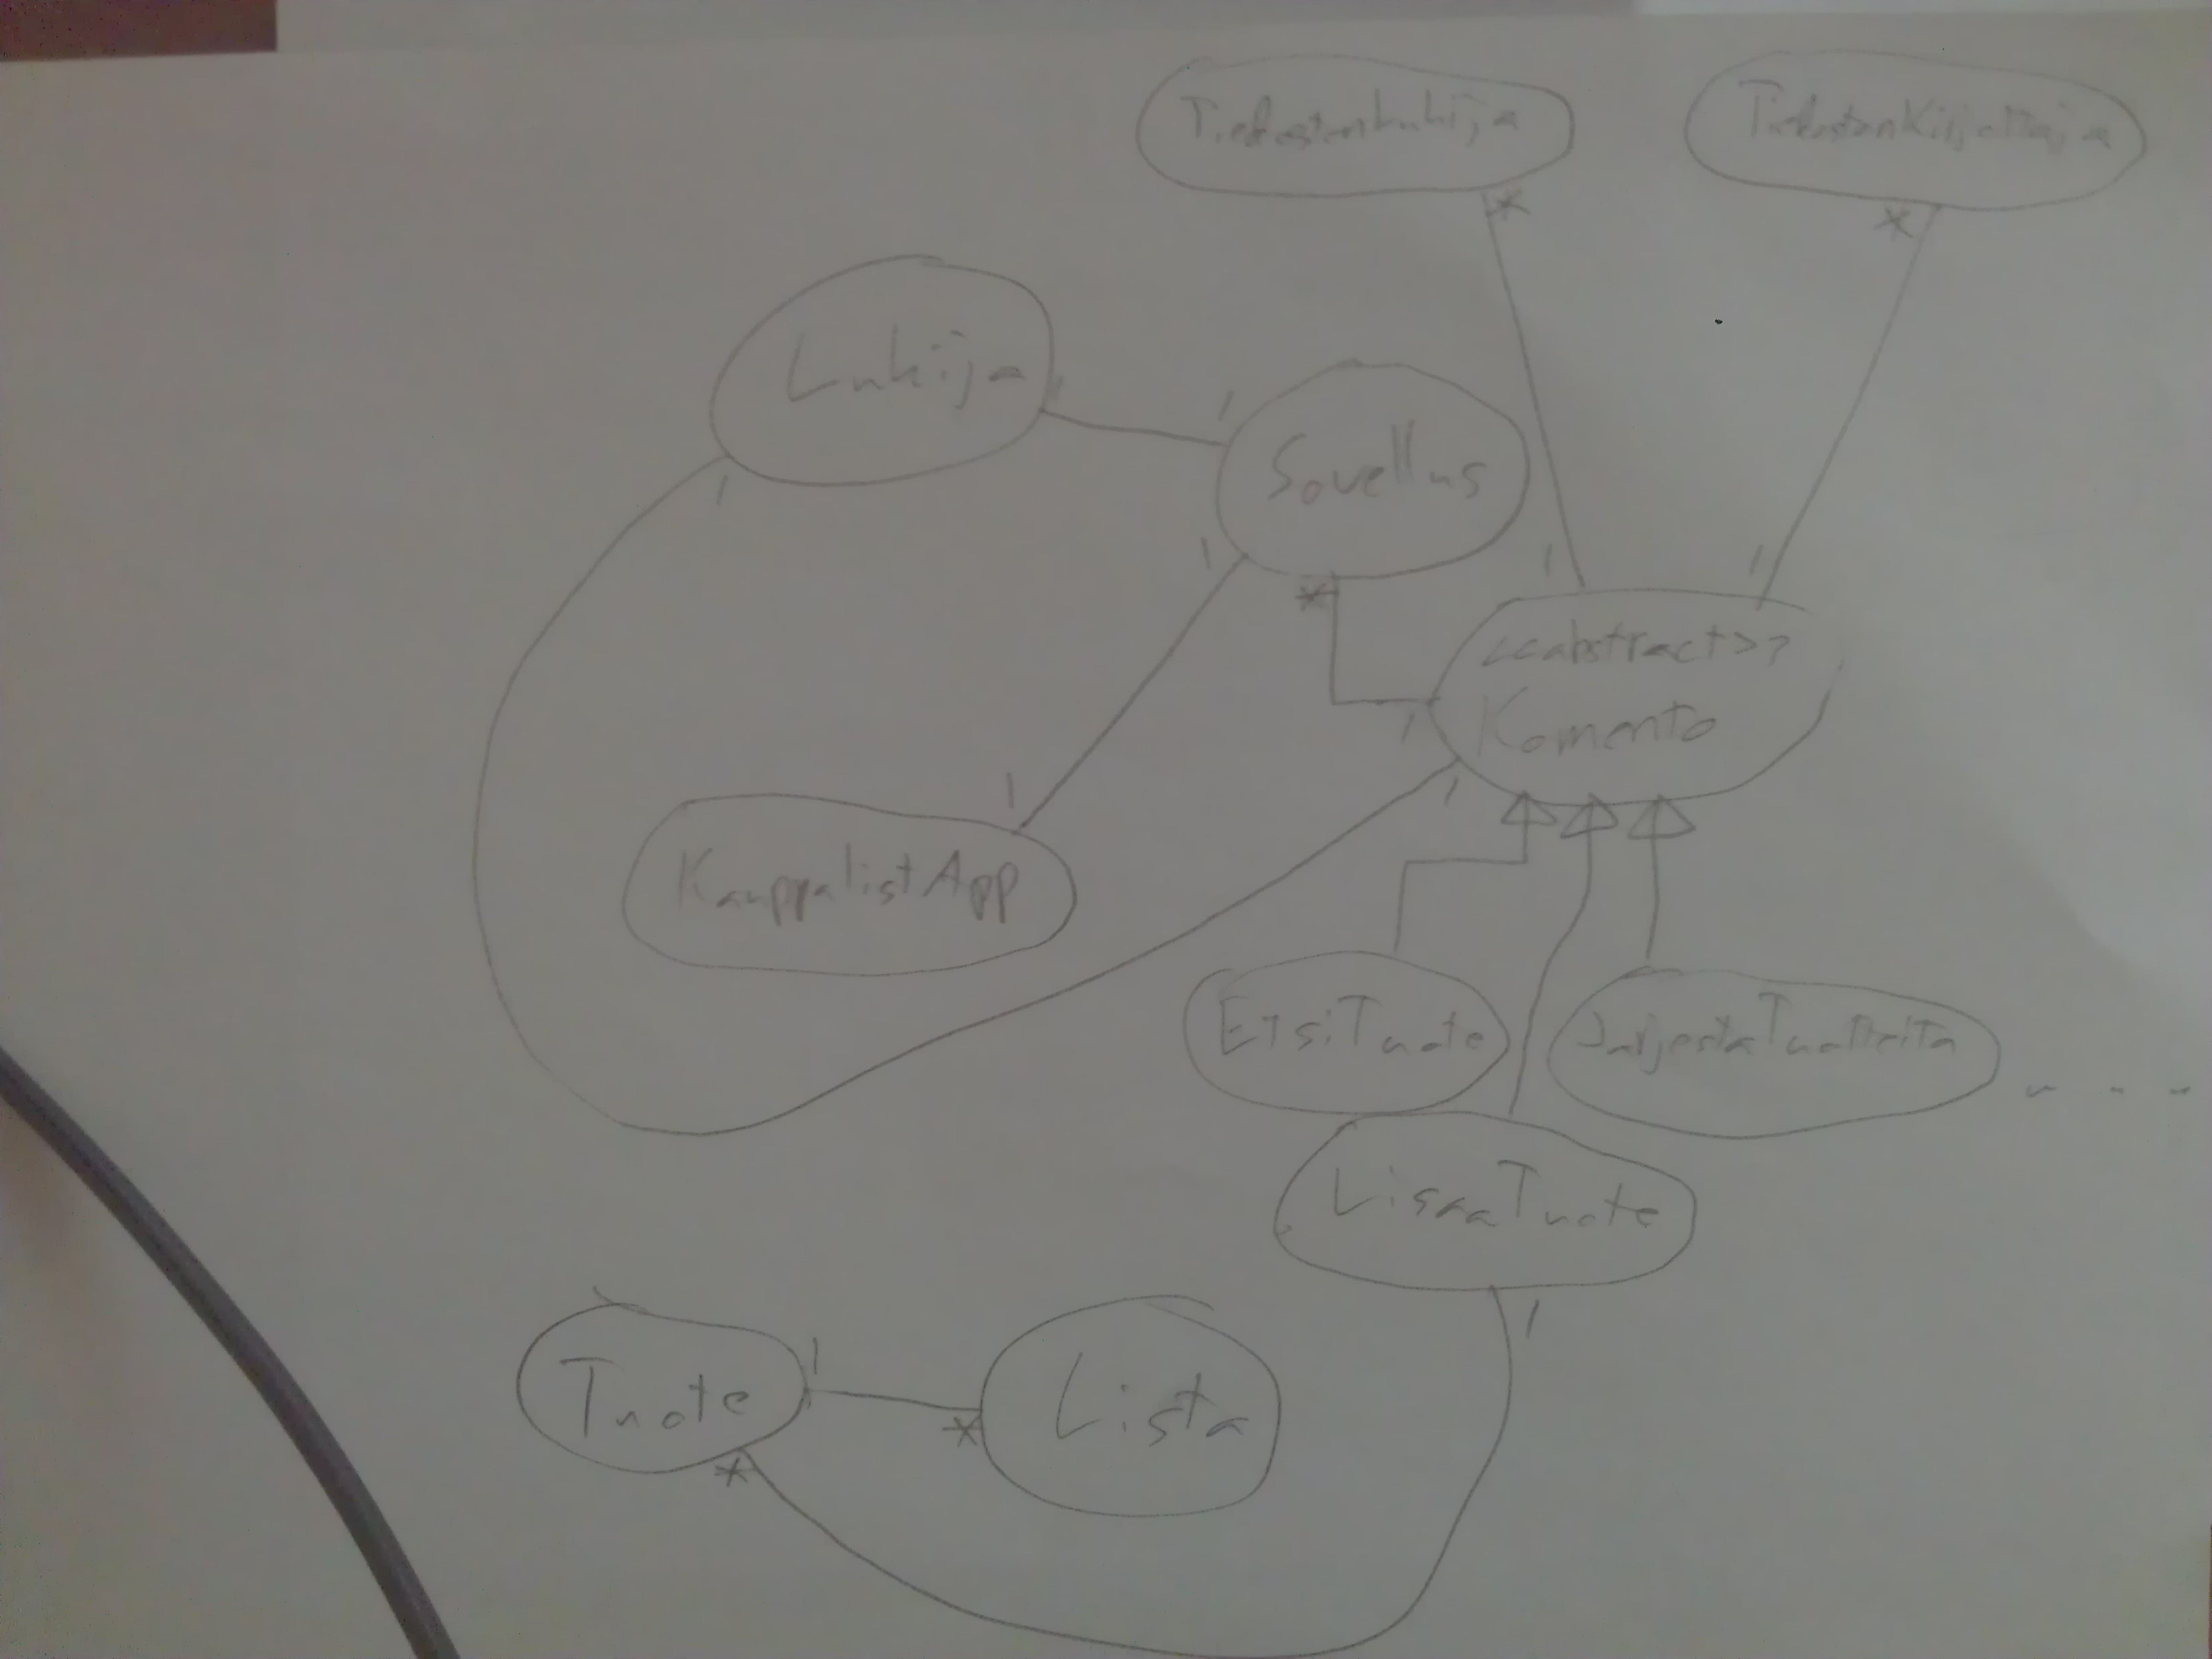 TiedostonLukija
TiedostonKirjoittaja
*
*
Lukija
1
1
Sovellus
1
1
*
1
1
<<abstract>>
Komento
1
1
1
KauppalistApp
EtsiTuote
JarjestaTuotteita
. . .
LisaaTuote
1
Tuote
1
*
Lista
*